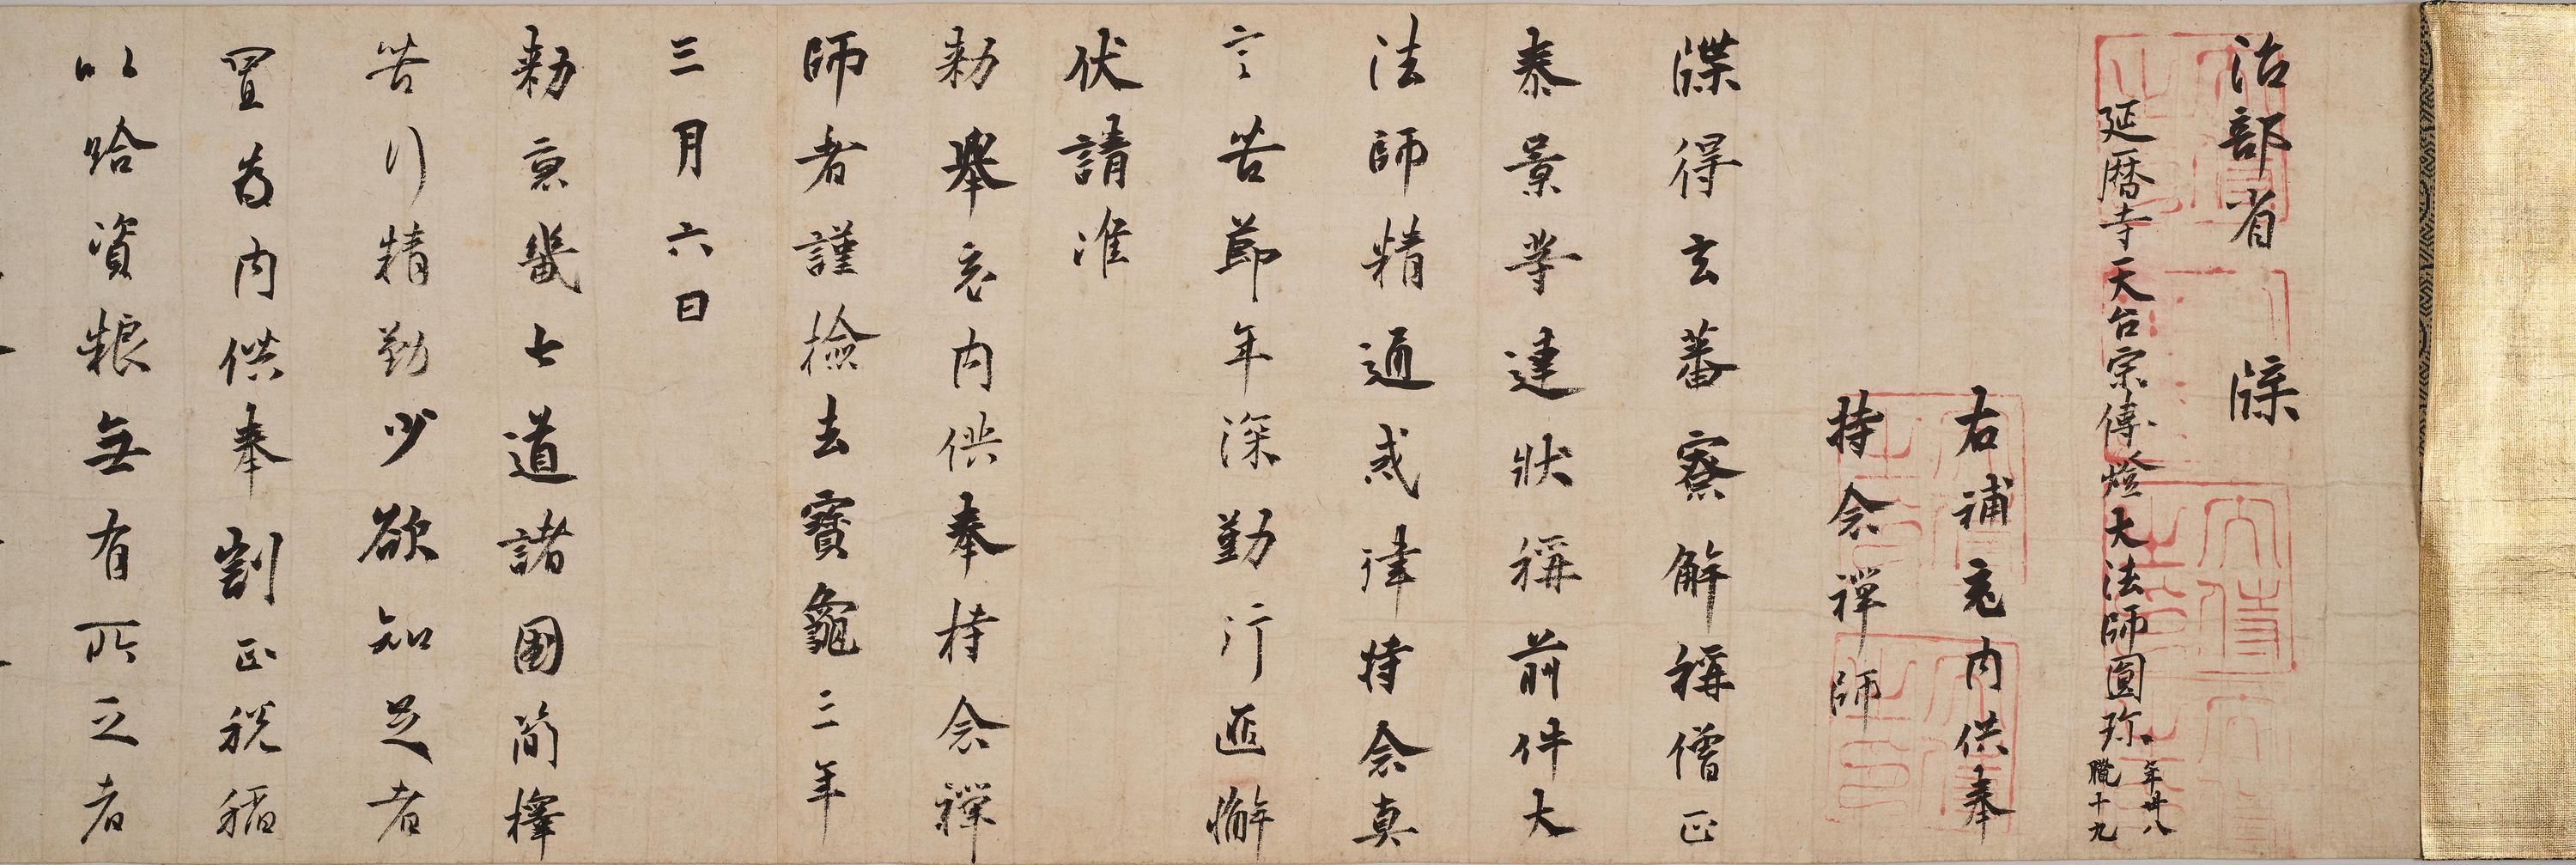 治部省　牒
延暦寺天台宗傳燈大法師圓珎 年卅八 臈十九
右補充内供奉
持念禪師
牒得玄蕃寮解稱僧正
泰景等連狀稱前件大
法師精通戒律持念真
言苦節年深勤行匪懈
伏請准
勅舉内供奉持念禪
師者謹撿去寳龜三年
三月六日
勅京畿七道諸國簡擇
苦行精勤少欲知足者
置為内供奉割正税稲
以給資粮無有所乏者